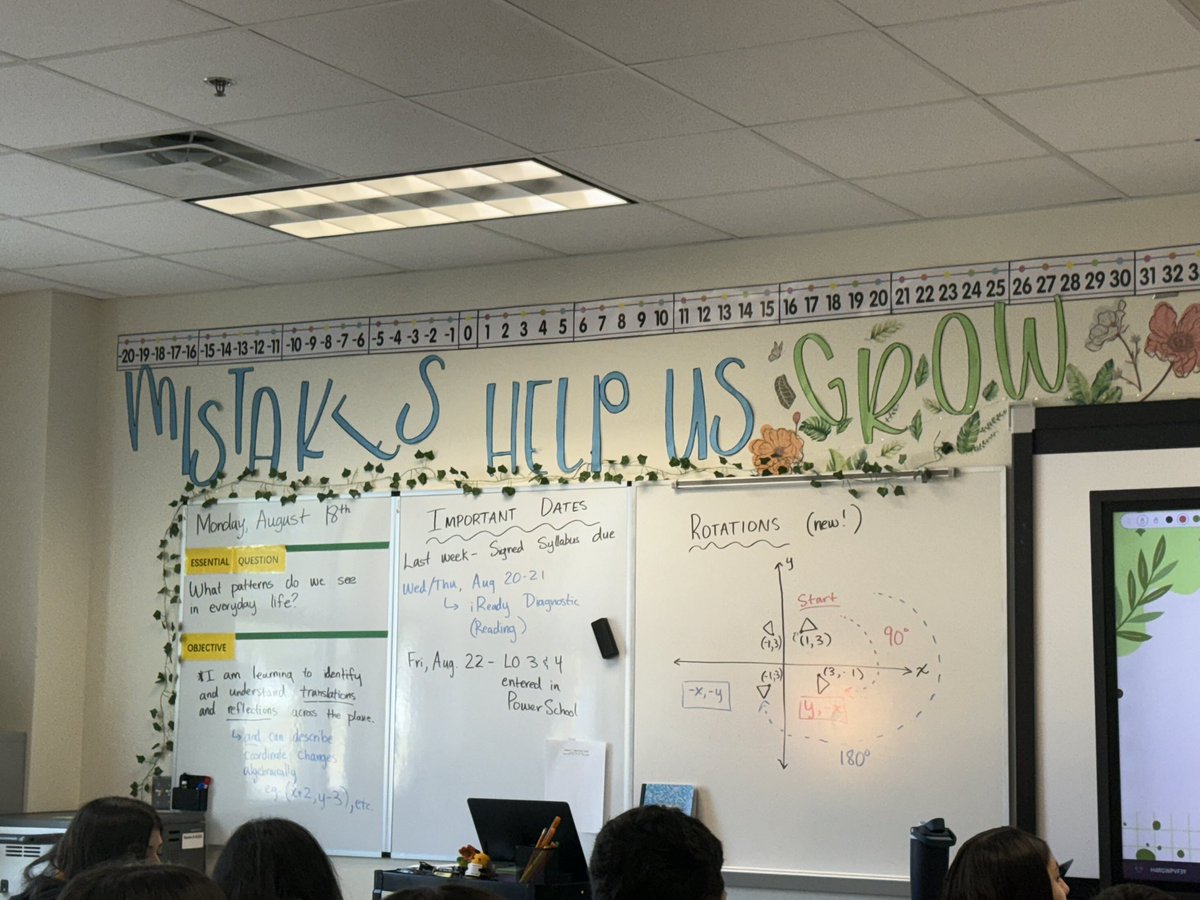 -20 -19 -18 -17 -16 -15 -14 -13 -12 -11 -10 -9 -8 -7 -6 -5 -4 -3 -2 -1 0 1 2 3 4 5 6 7 8 9 10 11 12 13 14 15 16 17 18 19 20 21 22 23 24 25 26 27 28 29 30 31 32
MISTAKES HELP US GROW
Monday, August 18th
ESSENTIAL QUESTION
What patterns do we see
in everyday life?
OBJECTIVE
*I am learning to identify
and understand translations
and reflections across the plane.
↳ and can describe
coordinate changes
algebraically
eg (x+2, y-3), etc.
IMPORTANT DATES
Last week - Signed Syllabus due
Wed/Thu, Aug 20-21
↳ iReady Diagnostic
(Reading)
Fri, Aug. 22 - LO 3 & 4
entered in
PowerSchool
ROTATIONS (new!)
y
Start
(1,3)
90°
x
(3,-1)
y, -x
-x, -y
180°